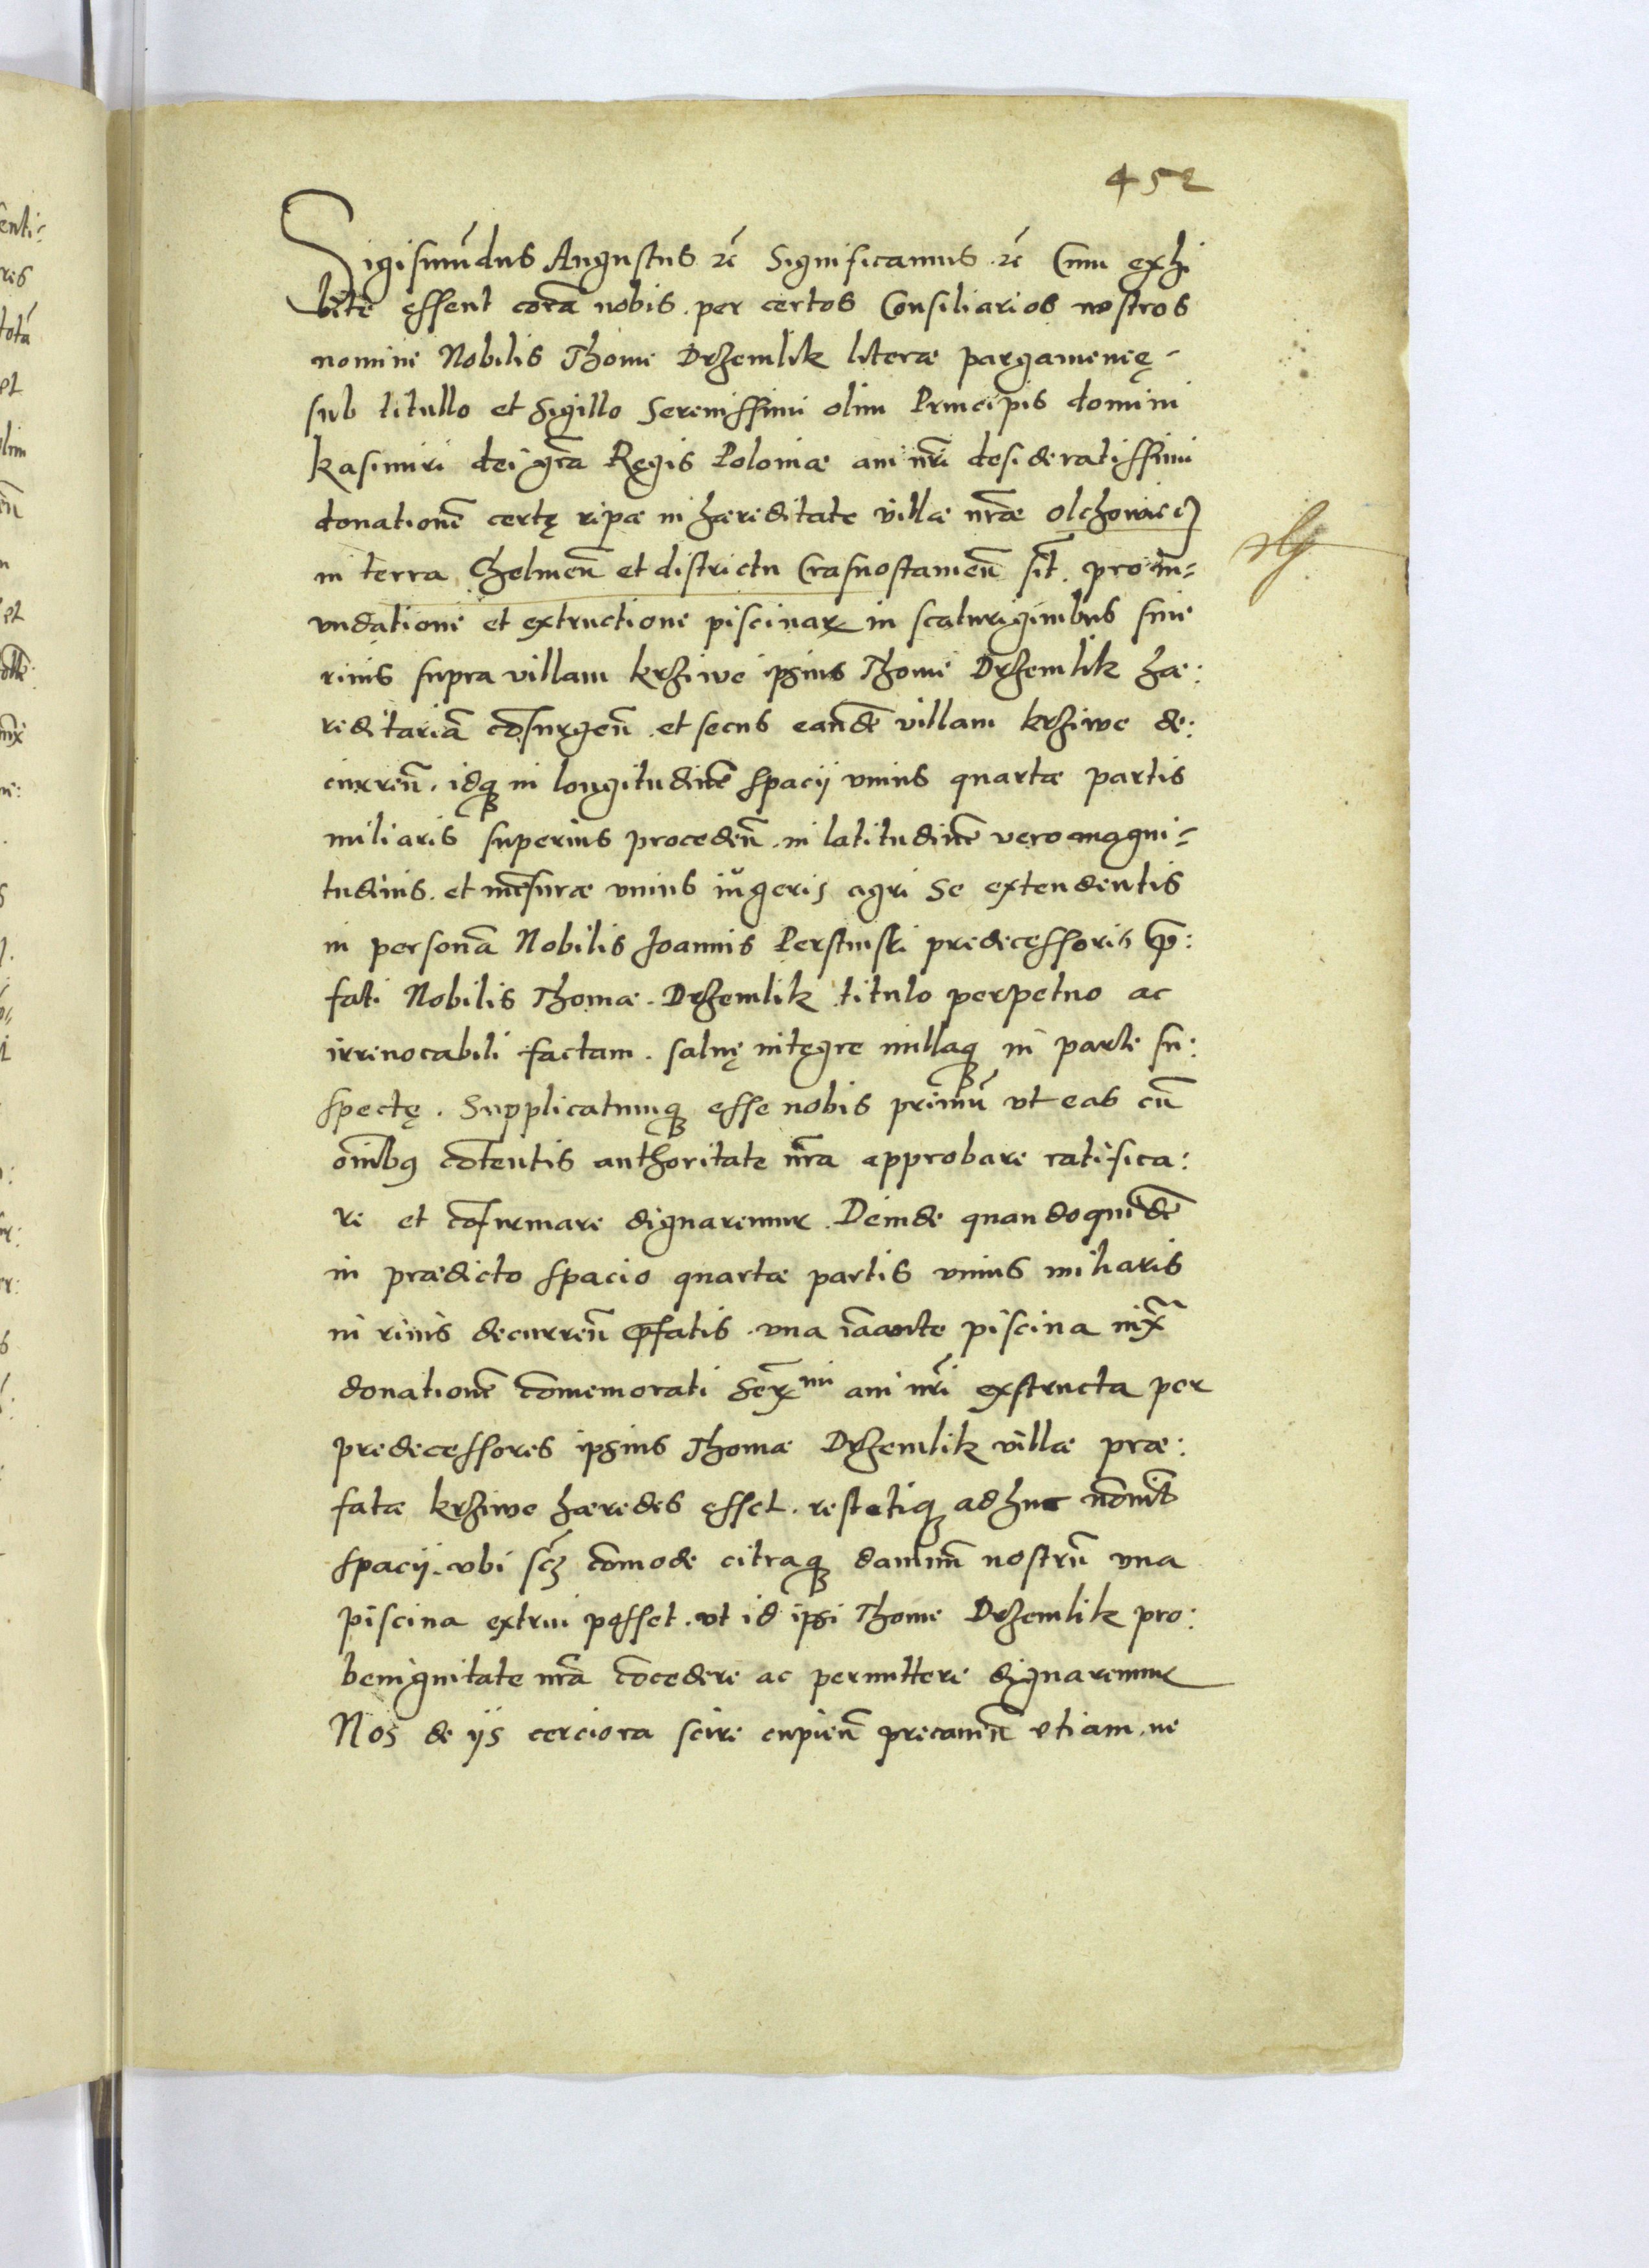 452
Sigismũdus Augustus ꝛc̃ Significamus ꝛc̃ Cum exhi
bite essent corã nobis per certos Consiliarios nostros
nomine Nobilis Thome Drzemlik literæ pargamenię
sub titullo et Sigillo Serenissimi olim Principis domini
Kasimiri dei gr̃a Regis Poloniæ aui nr̃i desideratissimi
donationẽ certę ripæ in hæreditate villæ nr̃æ Olchowiecz
in terra Chelmeñ et districtu Crasnostauieñ sit̃. pro in=
undatione et extructione piscinarꝝ in scaturiginibus siue
riuis supra villam Krziwe ipsius Thome Drzemlik hæ:
reditariã cõsurgeñ et secus eandẽ villam Krziwe de:
curreñ. idqꝫ in longitudinẽ spacij vnius quartæ partis
miliaris superius procedeñ. in latitudinẽ vero magni=
tudinis. et mẽsuræ vnius iugeris agri se extendentis
in personã Nobilis Joannis Perstinski predecessoris p̱:
fati Nobilis Thomæ Drzemlik titulo perpetuo ac
irreuocabili factam. saluę integre nullaqꝫ in parte su:
spectę. Supplicatumqꝫ esse nobis primũ vt eas cũ
oĩnibꝰ cõtentis authoritate nr̃a approbare ratifica:
re et cõfirmare dignaremur. Deinde quandoquidẽ
in prædicto spacio quartæ partis vnius miliaris
in riuis decurreñ p̱fatis vna iã ante piscina iux̃
donationẽ cõmemorati Serꝝmi aui nr̃i exstructa per
predecessores ipsius Thomæ Drzemlik villæ præ:
fatæ Krziwe hæredes esset. restetiqꝫ adhuc nõnihil
spacij. vbi scꝫ cõmode citraqꝫ damnũ nostrũ vna
piscina extrui posset. vt id ipsi Thome Drzemlik pro:
benignitate nr̃a cõcedere ac permittere dignaremur
Nos de ijs cerciora scire cupieñ precamiñ etiam ne